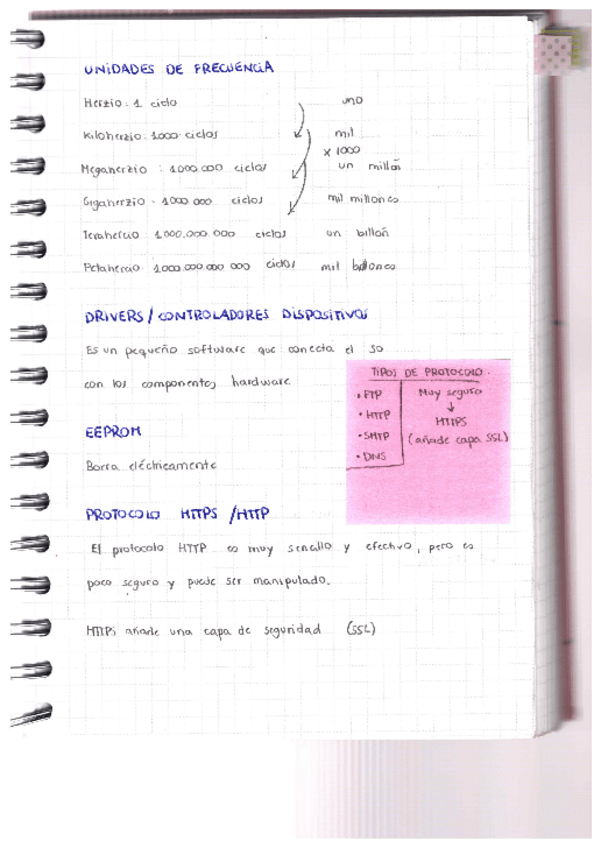 UNIDADES DE FRECUENCIA
Herzio: 1 ciclo uno
Kiloherzio: 1000 ciclos mil
x 1000
Megaherzio : 1.000.000 ciclos un millón
Gigaherzio - 1000.000 ciclos mil millones
Terahercio 1.000.000.000 ciclos un billón
Petahercio 1.000.000.000.000 ciclos mil billones
DRIVERS / CONTROLADORES DISPOSITIVOS
Es un pequeño software que conecta el SO
con los componentes hardware
TIPOS DE PROTOCOLO.
• FTP
• HTTP
• SMTP
• DNS
Muy seguro
↓
HTTPS
(añade capa SSL)
EEPROM
Borra eléctricamente
PROTOCOLO HTTPS / HTTP
El protocolo HTTP es muy sencillo y efectivo, pero es
poco seguro y puede ser manipulado.
HTTPS añade una capa de seguridad (SSL)